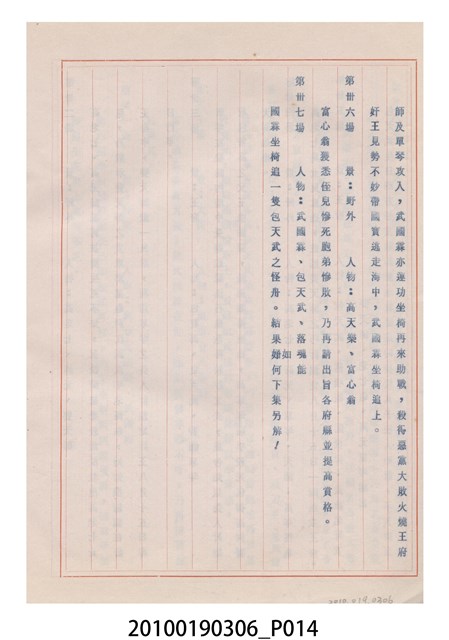 師及單琴攻入，武國霖亦運功坐椅再來助戰，殺得惡黨大敗火燒王府
奸王見勢不妙帶國寶逃走海中，武國霖坐椅追上。
第卅六場　景：野外　人物：高天傑、富心翁
富心翁獲悉侄兒慘死胞弟慘敗，乃再請出旨各府縣並提高賞格。
第卅七場　人物：武國霖、包天武、落魂能
國霖坐椅追一隻包天武之怪舟。結果如何下集另解！
2010.019.0306
20100190306_P014